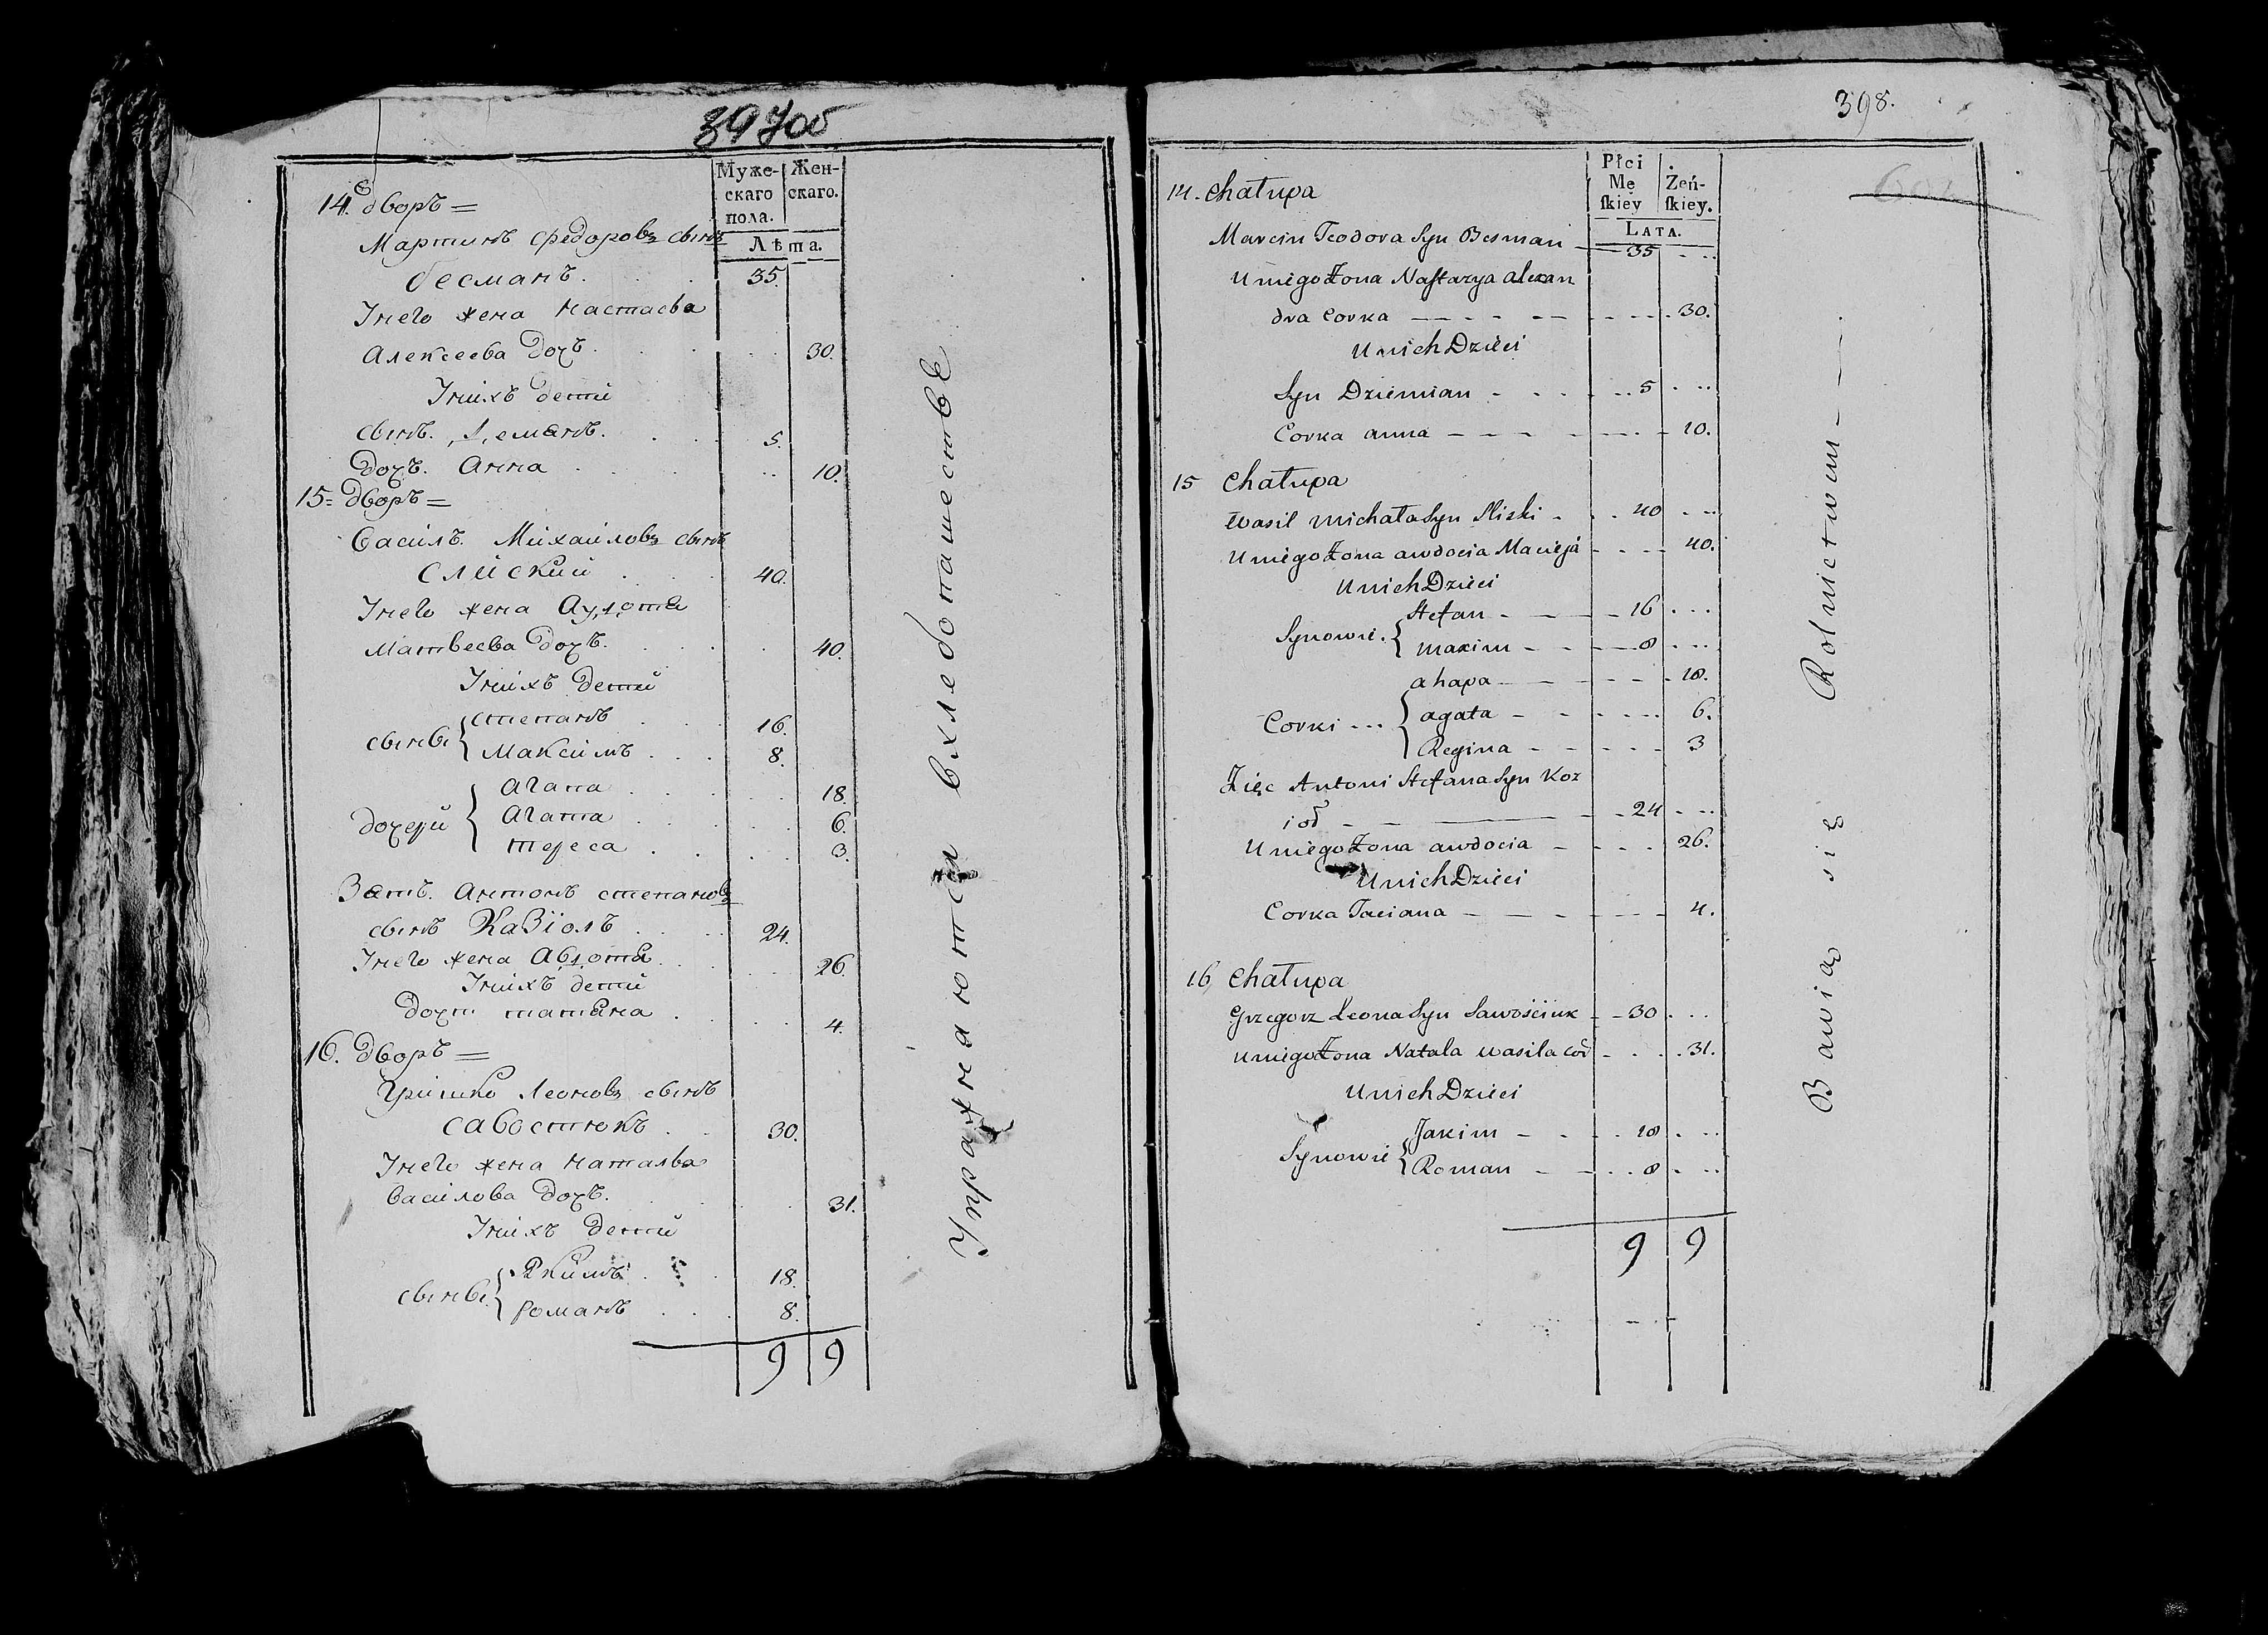 397об
Муже-
скаго
пола.
Жен-
скаго.
Лѣта.
14. дворъ =
Мартинъ Федоровъ сынъ
бесманъ. 35.
Унего жена настасья
Алексеева дочь. 30.
Унихъ дети
сынъ. Демянъ. 5.
Дочь. Анна 10.
15 = дворъ =
Василь. Михаиловъ сынъ
слиский 40.
Унего жена Аудотя
матвеева дочь. 40.
Унихъ дети
сыны { степанъ 16.
максимъ 8.
дочери { Агапа 18.
Агата 6.
тереса 3.
Зять. Антонъ степановъ
сынъ Казіолъ 24.
Унего жена Авдотя 26.
Унихъ дети
Дочь татяна 4.
16. дворъ =
Гришко Леоновъ сынъ
савостюкъ 30.
Унего жена наталья
василова дочь. 31.
Унихъ дети
сыны { Якимъ 18.
романъ 8.
9 9
Упражняются в хлебопашестве
398.
Płci
Mę
ſkiey
Żeń-
ſkiey.
LATA.
14. Chałupa
Marcin Teodora Syn Besman 35
U niego Żona Naſtazya alexan
dra Corka 30.
U nich Dzieci
Syn Dziemian 5
Corka anna 10.
15 Chałupa
Wasil Michała Syn Sliski 40
U niego Żona awdocia Macieja 40.
U nich Dzieci
Synowie { Stefan 16
maxim 8
Corki { ahapa 18.
agata 6.
Regina 3
Zięc Antoni Stefana Syn Koz
ioł 24
U niego Żona awdocia 26.
U nich Dzieci
Corka Taciana 4.
16 Chałupa
Grzegorz Leona Syn Sawościuk 30
U niego Żona Natala wasila cor 31.
U nich Dzieci
Synowie { Jakim 18
Roman 8
9 9
Bawią się Rolnictwem